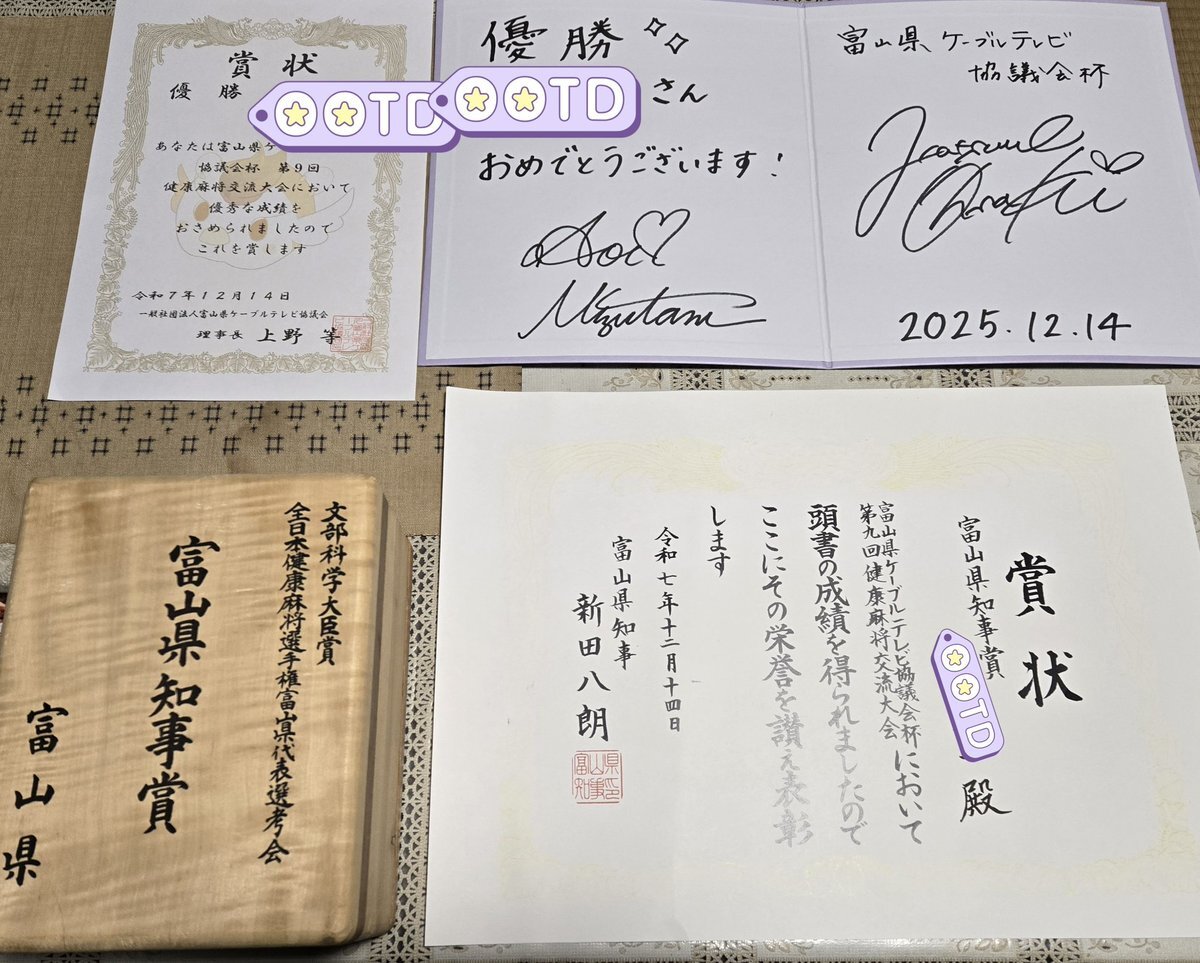 賞状
優勝
OOTD
あなたは富山県ケ
協議会杯 第9回
健康麻将交流大会において
優秀な成績を
おさめられましたので
これを賞します
令和7年12月14日
一般社団法人富山県ケーブルテレビ協議会
理事長 上野 等
優勝
OOTD
さん
おめでとうございます!
Aoi
Mizutani
富山県 ケーブルテレビ
協議会杯
2025.12.14
文部科学大臣賞
全日本健康麻将選手権富山県代表選考会
富山県知事賞
富山県
賞状
富山県知事賞
OOTD
殿
富山県ケーブルテレビ協議会杯
第九回健康麻将交流大会
において
頭書の成績を得られましたので
ここにその栄誉を讃え表彰
します
令和七年十二月十四日
富山県知事
新田八朗
富山県
知事印